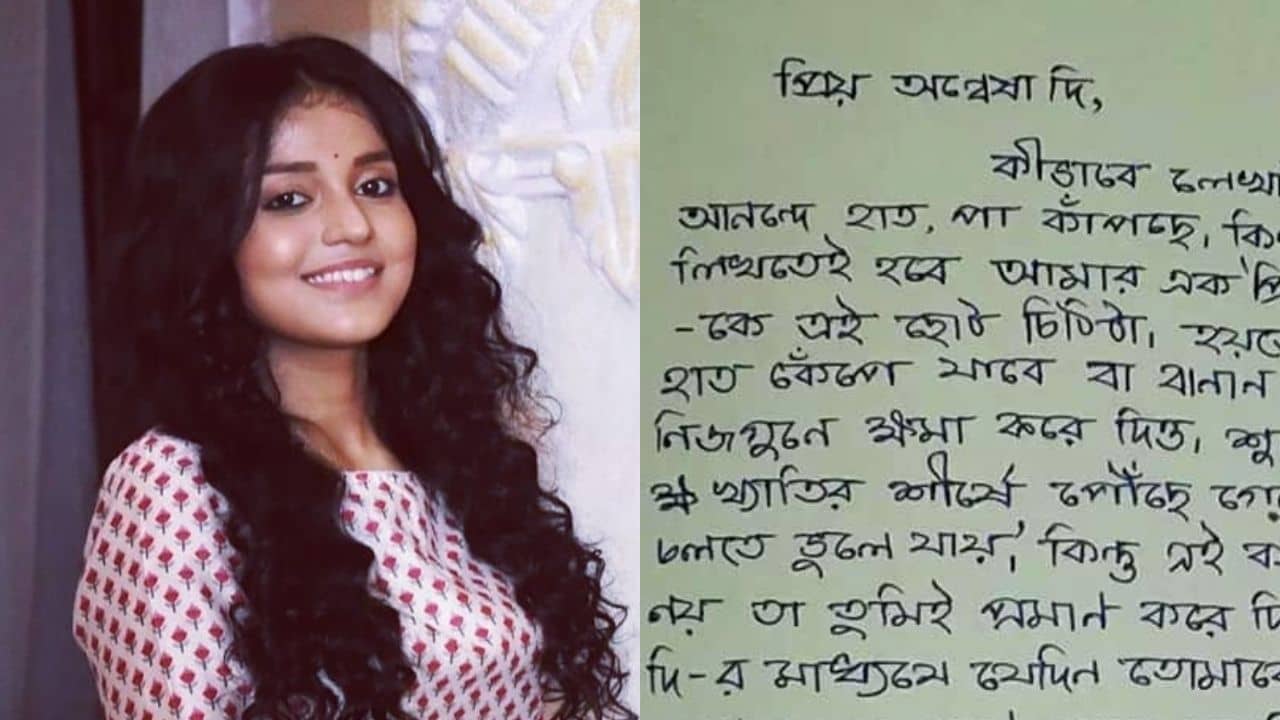 প্রিয় অন্বেষা দি,
কীভাবে লেখা
আনন্দে হাত, পা কাঁপছে, কি
লিখতেই হবে আমার এক প্রি
-কে এই ছোট চিঠিটা, হয়তো
হাত কেঁপে যাবে বা বানান
নিজগুনে ক্ষমা করে দিও, শু
খ্যাতির শীর্ষে পৌঁছে গে
চলতে ভুলে যায়, কিন্তু এই ক
নয় তা তুমিই প্রমান করে দি
দি-র মাধ্যমে যেদিন তোমাকে